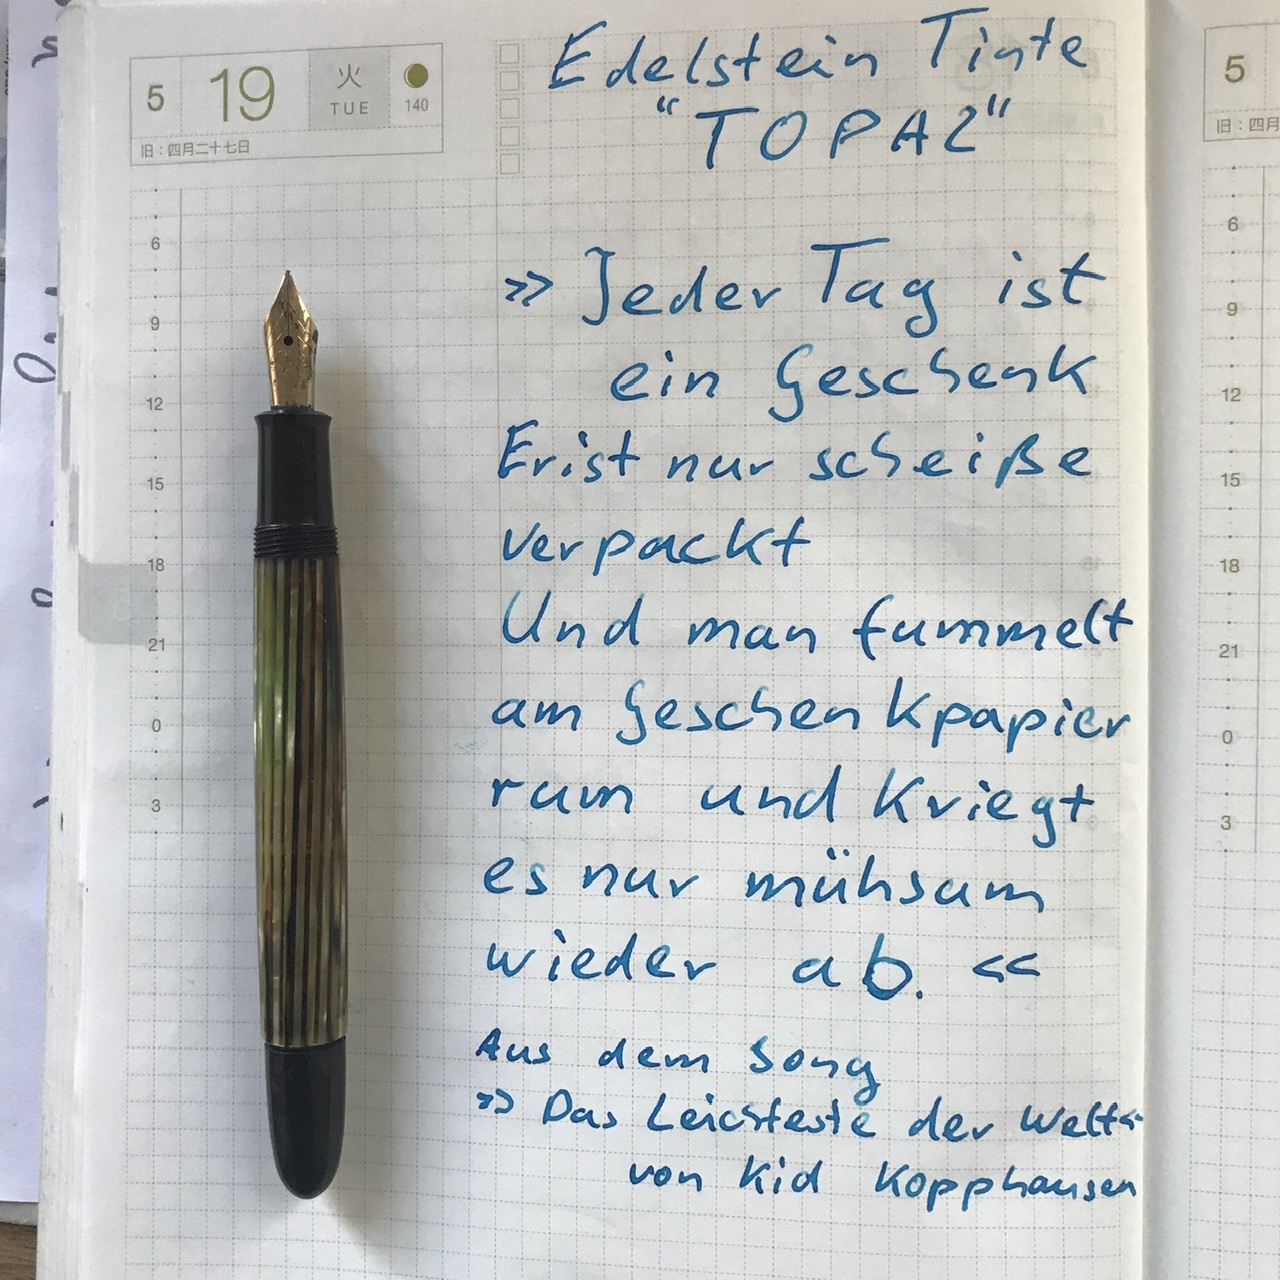 5 19 火 TUE 140
旧：四月二十七日
6
9
12
15
18
21
0
3
Edelstein Tinte
"TOPAZ"
» Jeder Tag ist
ein Geschenk
Er ist nur scheiße
verpackt
Und man fummelt
am Geschenkpapier
rum und kriegt
es nur mühsam
wieder ab. «
Aus dem Song
» Das Leichteste der Welt «
von Kid Kopphausen
5
旧：四月
6
9
12
15
18
21
0
3